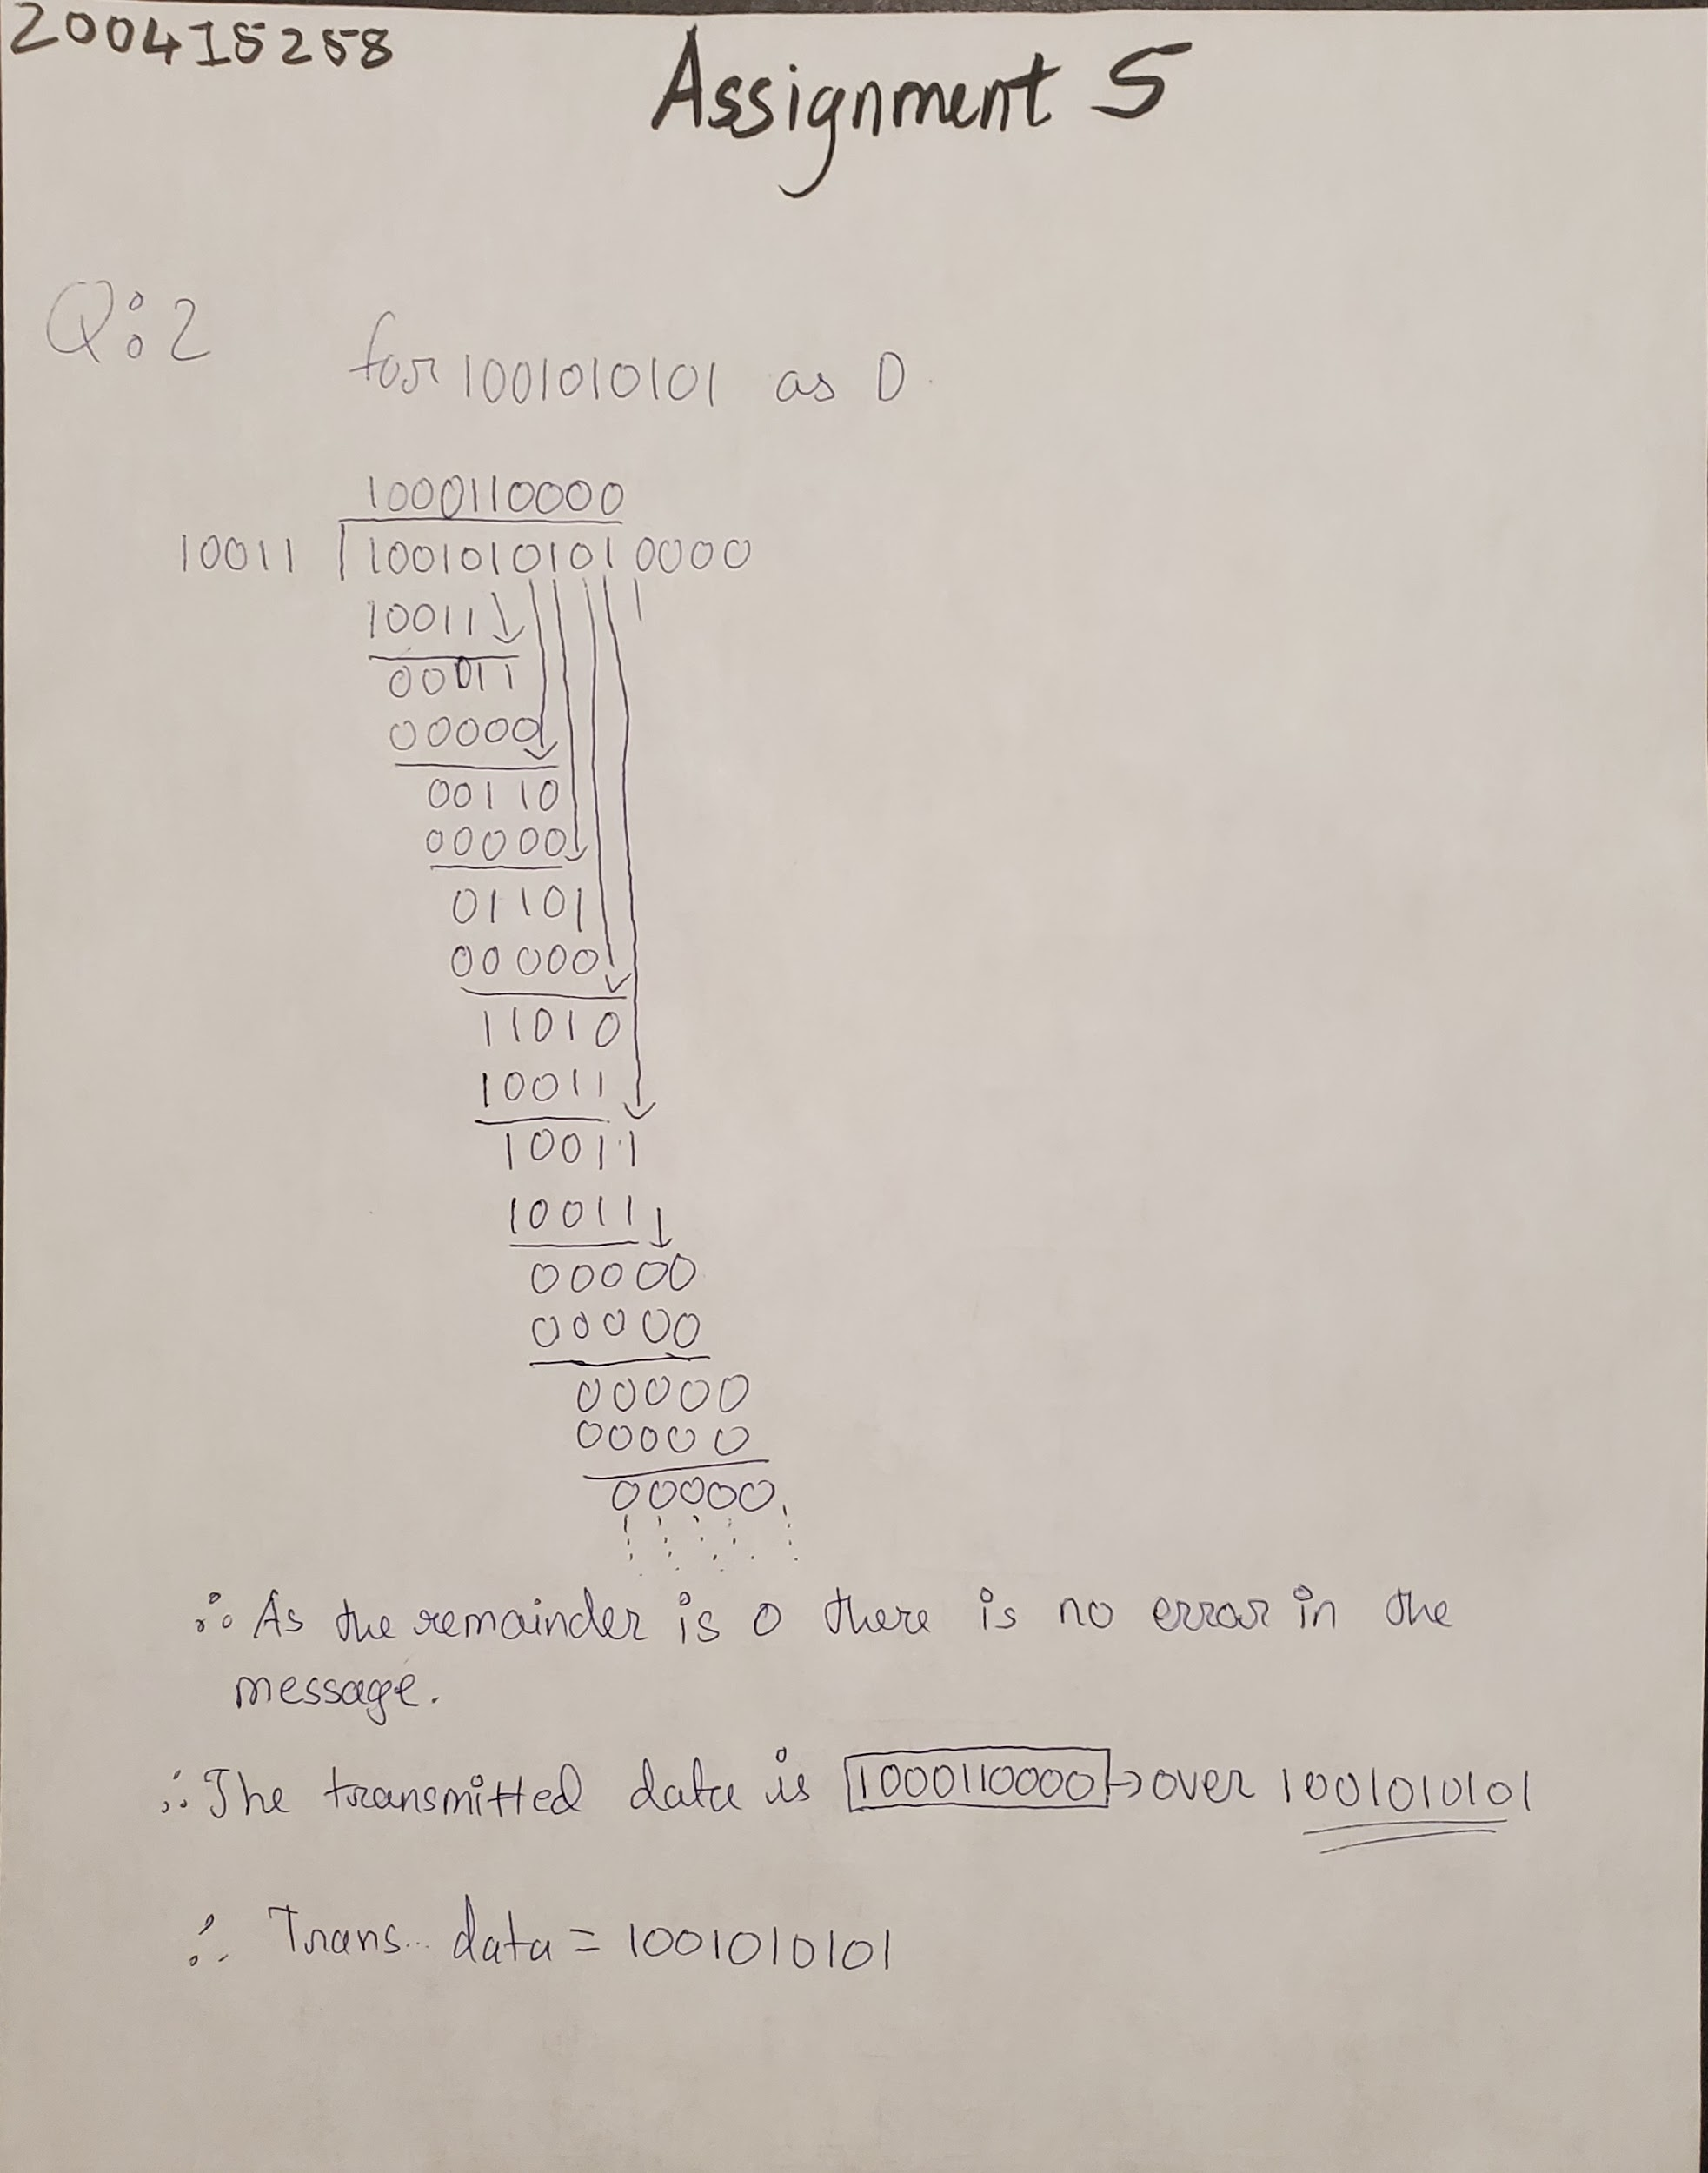 200415258
Assignment 5
Q:2 for 1001010101 as D.
1000110000
10011 10010101010000
10011
00011
00000
00110
00000
01101
00000
11010
10011
10011
10011
00000
00000
00000
00000
00000
∴ As the remainder is 0 there is no error in the
message.
∴ The transmitted data is 1000110000 → over 1001010101
∴ Trans.. data = 1001010101